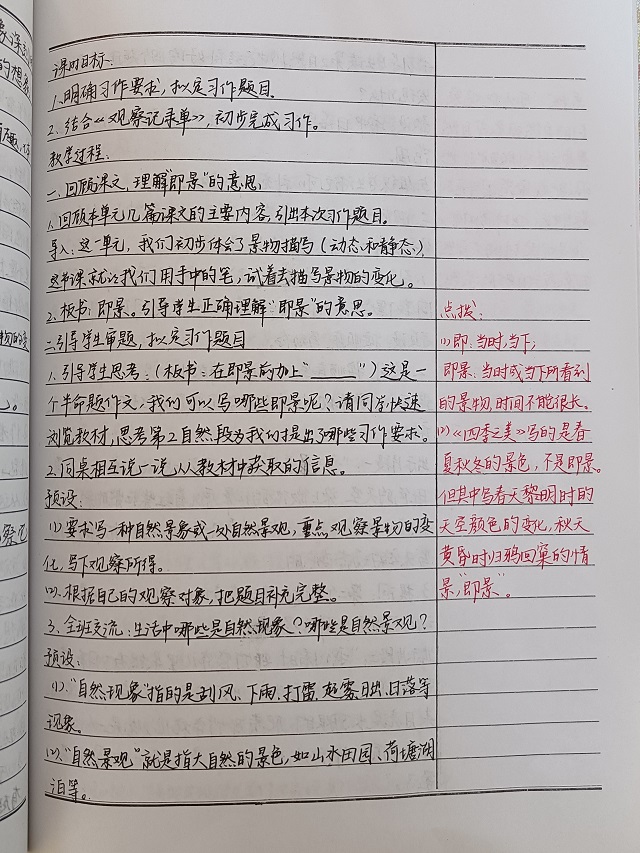 课时目标:
1.明确习作要求,拟定习作题目.
2.结合《观察记录单》,初步完成习作。
教学过程:
一.回顾课文,理解"即景"的意思.
1.回顾本单元几篇课文的主要内容,引出本次习作题目.
导入:这一单元,我们初步体会了景物描写(动态和静态),
这节课就让我们用手中的笔,试着去描写景物的变化。
2.板书:即景。引导学生正确理解"即景"的意思。
二.引导学生审题,拟定习作题目
1.引导学生思考:(板书:在即景前加上"____")这是一
个半命题作文,我们可以写哪些即景呢?请同学快速
浏览教材,思考第2自然段为我们提出了哪些习作要求。
2.同桌相互说一说从教材中获取的信息。
预设:
(1)要求写一种自然景象或一处自然景观,重点观察景物的变
化,写下观察所得。
(2).根据自己的观察对象,把题目补充完整。
3.全班交流:生活中哪些是自然现象?哪些是自然景观?
预设:
(1)."自然现象"指的是刮风、下雨.打雷.起雾.日出、日落等
现象。
(2)."自然景观"就是指大自然的景色,如山水田园、荷塘湖
泊等。
点拨:
(1)即:当时,当下;
即景:当时或当下所看到
的景物,时间不能很长。
(2)《四季之美》写的是春
夏秋冬的景色,不是即景。
但其中写春天黎明时的
天空颜色的变化,秋天
黄昏时归鸦回窠的情
景,"即景"。